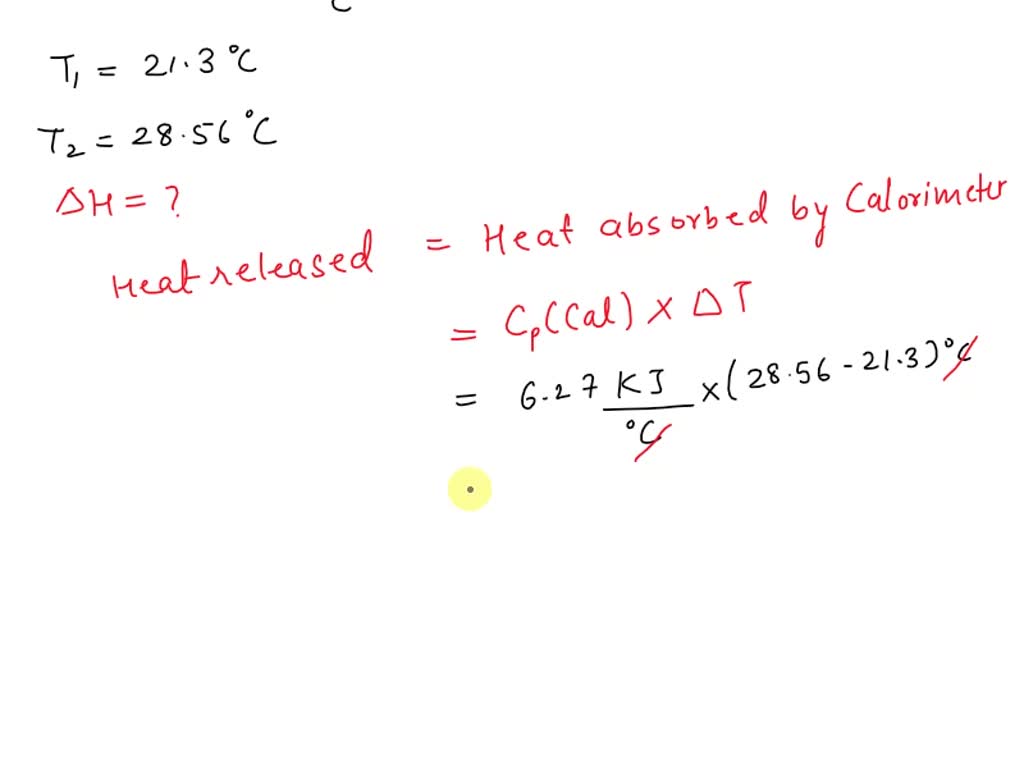 T₁ = 21.3 °C
T₂ = 28.56 °C
ΔH = ?
Heat released = Heat absorbed by Calorimeter
= Cp(Cal) × ΔT
= 6.27 KJ/°C × (28.56 - 21.3) °C